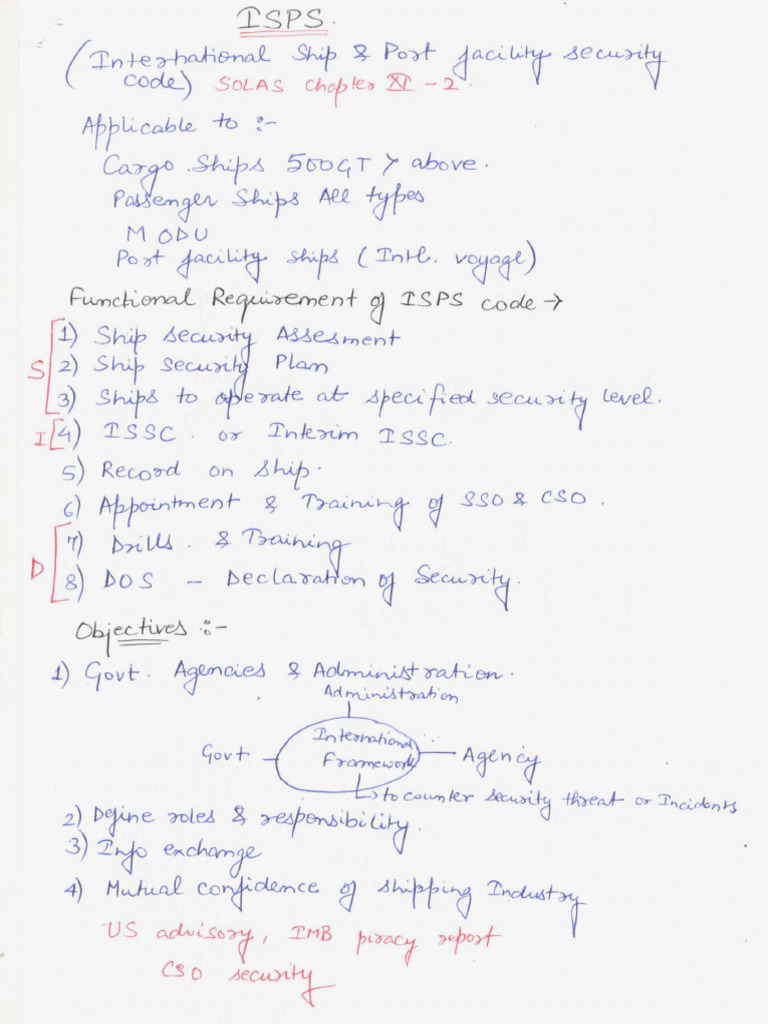 ISPS.
(International Ship & Port facility security
code) SOLAS Chapter XI - 2.
Applicable to :-
Cargo Ships 500GT > above.
Passenger Ships All types
MODU
Port facility ships (Intl. voyage)
Functional Requirement of ISPS code →
1) Ship security Assesment
S 2) Ship security Plan
3) Ships to operate at specified security level.
I 4) ISSC. or Interim ISSC.
5) Record on ship.
6) Appointment & Training of SSO & CSO.
7) Drills. & Training
D 8) DOS - Declaration of Security.
Objectives :-
1) Govt. Agencies & Administration.
Administration
International
Govt Framework Agency
to counter security threat or Incidents
2) Define roles & responsibility.
3) Info exchange
4) Mutual confidence of shipping Industry
US advisory, IMB piracy report
CSO security